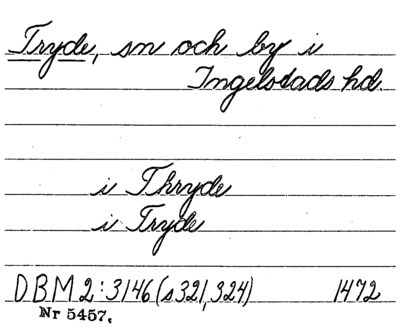 Tryde, sn och by i
Ingelstads hd.
i Thryde
i Tryde
DBM 2:3146 (s 321, 324) 1472
Nr 5457.